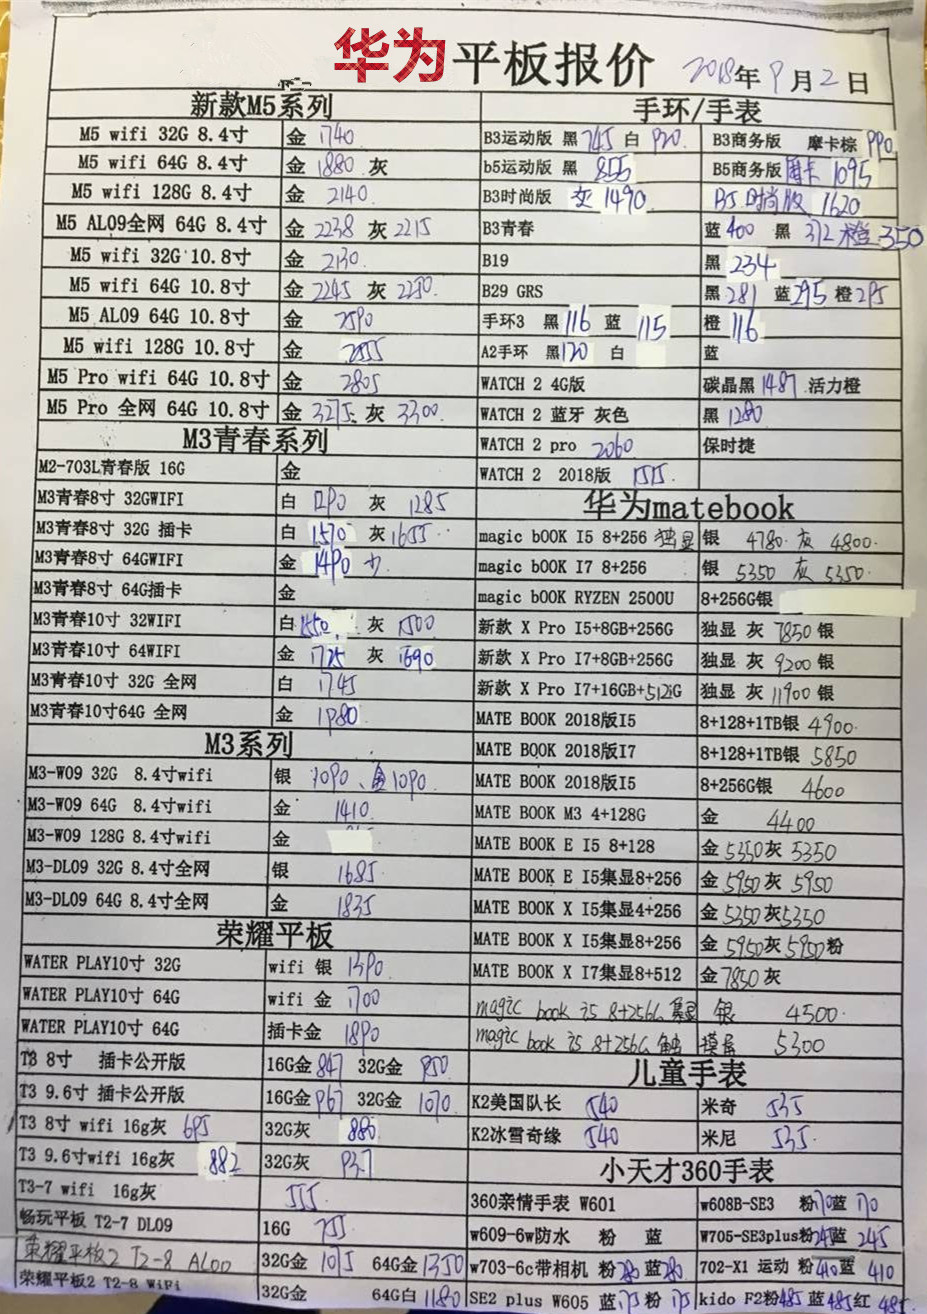 华为平板报价 2018年9月2日
新款M5系列
M5 wifi 32G 8.4寸 金 1740
M5 wifi 64G 8.4寸 金 1880 灰
M5 wifi 128G 8.4寸 金 2140
M5 AL09全网 64G 8.4寸 金 2238 灰 2215
M5 wifi 32G 10.8寸 金 2130
M5 wifi 64G 10.8寸 金 2245 灰
M5 AL09 64G 10.8寸 金 2590
M5 wifi 128G 10.8寸 金
M5 Pro wifi 64G 10.8寸 金 2805
M5 Pro 全网 64G 10.8寸 金 3275 灰 3300
M3青春系列
M2-703L青春版 16G 金
M3青春8寸 32GWIFI 白 1290 灰 1285
M3青春8寸 32G 插卡 白 1570 灰 1655
M3青春8寸 64GWIFI 金 1490
M3青春8寸 64G插卡 金
M3青春10寸 32WIFI 白 1550 灰 1500
M3青春10寸 64WIFI 金 1725 灰 1690
M3青春10寸 32G 全网 白 1745
M3青春10寸64G 全网 金 1980
M3系列
M3-W09 32G 8.4寸wifi 银 1090、金1090
M3-W09 64G 8.4寸wifi 金 1410
M3-W09 128G 8.4寸wifi 金
M3-DL09 32G 8.4寸全网 银 1685
M3-DL09 64G 8.4寸全网 金 1835
荣耀平板
WATER PLAY10寸 32G wifi 银 1390
WATER PLAY10寸 64G wifi 金 1700
WATER PLAY10寸 64G 插卡金 1890
T3 8寸 插卡公开版 16G金 847 32G金 950
T3 9.6寸 插卡公开版 16G金 967 32G金 1070
T3 8寸 wifi 16g灰 695 32G灰 880
T3 9.6寸wifi 16g灰 882 32G灰 937
T3-7 wifi 16g灰 555
畅玩平板 T2-7 DL09 16G 755
荣耀平板2 T2-8 AL00 32G金 1075 64G金 1350
荣耀平板2 T2-8 WiFi 32G金 64G白 1180
手环/手表
B3运动版 黑 745 白 920 B3商务版 摩卡棕 990
b5运动版 黑 855 B5商务版 摩卡 1095
B3时尚版 灰 1490 B5时尚版 1620
B3青春 蓝 400 黑 372 橙 350
B19 黑 234
B29 GRS 黑 281 蓝 295 橙 295
手环3 黑 116 蓝 115 橙 116
A2手环 黑 120 白 蓝
WATCH 2 4G版 碳晶黑 1487 活力橙
WATCH 2 蓝牙 灰色 黑 1280
WATCH 2 pro 2060 保时捷
WATCH 2 2018版 1515
华为matebook
magic bOOK I5 8+256 独显 银 4780 灰 4800
magic bOOK I7 8+256 银 5350 灰 5350
magic bOOK RYZEN 2500U 8+256G银
新款 X Pro I5+8GB+256G 独显 灰 7850 银
新款 X Pro I7+8GB+256G 独显 灰 9200 银
新款 X Pro I7+16GB+512G 独显 灰 11900 银
MATE BOOK 2018版I5 8+128+1TB银 4900
MATE BOOK 2018版I7 8+128+1TB银 5850
MATE BOOK 2018版I5 8+256G银 4600
MATE BOOK M3 4+128G 金 4400
MATE BOOK E I5 8+128 金 5350 灰 5350
MATE BOOK E I5集显8+256 金 5950 灰 5950
MATE BOOK X I5集显4+256 金 5350 灰 5350
MATE BOOK X I5集显8+256 金 5950 灰 5950 粉
MATE BOOK X I7集显8+512 金 7850 灰
magic book i5 8+256G 集显 银 4500
magic book i5 8+256G 触摸屏 5300
儿童手表
K2美国队长 540 米奇 535
K2冰雪奇缘 540 米尼 535
小天才360手表
360亲情手表 W601 w608B-SE3 粉 170 蓝 170
w609-6w防水 粉 蓝 W705-SE3plus粉 245 蓝 245
w703-6c带相机 粉 280 蓝 280 702-X1 运动 粉 410 蓝 410
SE2 plus W605 蓝 175 粉 175 kido F2粉 485 蓝 485 红 485